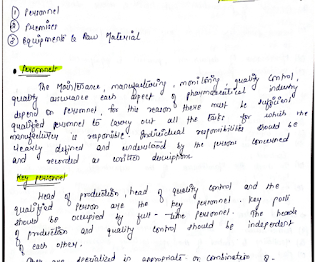 ① Personnel
② Premises
③ Equipments & Raw Material
• Personnel
The Maintenance, manufacturing, monitoring, quality control,
quality assurance each aspect of pharmaceutical industry
depend on Personnel, for this reason there must be sufficient
qualified personnel to carry out all the tasks for which the
manufacturer is responsible. Individual responsibilities should be
clearly defined and understood by the persons concerned
and recorded as written descriptions.
Key personnel
Head of production, head of quality control and the
qualified person are the key personnel. Key posts
should be occupied by full-time personnel. The heads
of production and quality control should be independent
of each other.
are specialized in appropriate or combination of-